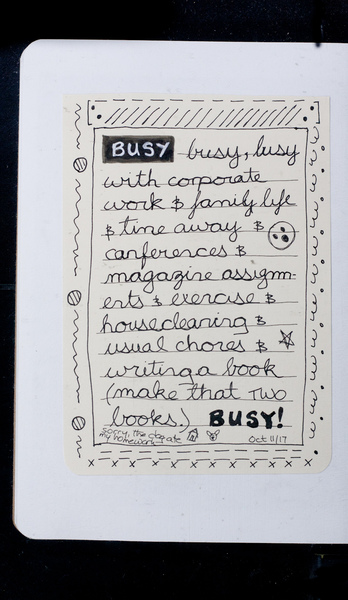 BUSY busy, busy
with corporate
work & family life
& time away &
conferences &
magazine assignm-
ents & exercise &
housecleaning &
usual chores &
writing a book
(make that TWO
books.) BUSY!
Sorry, the dog ate
my homework
Oct 11/17